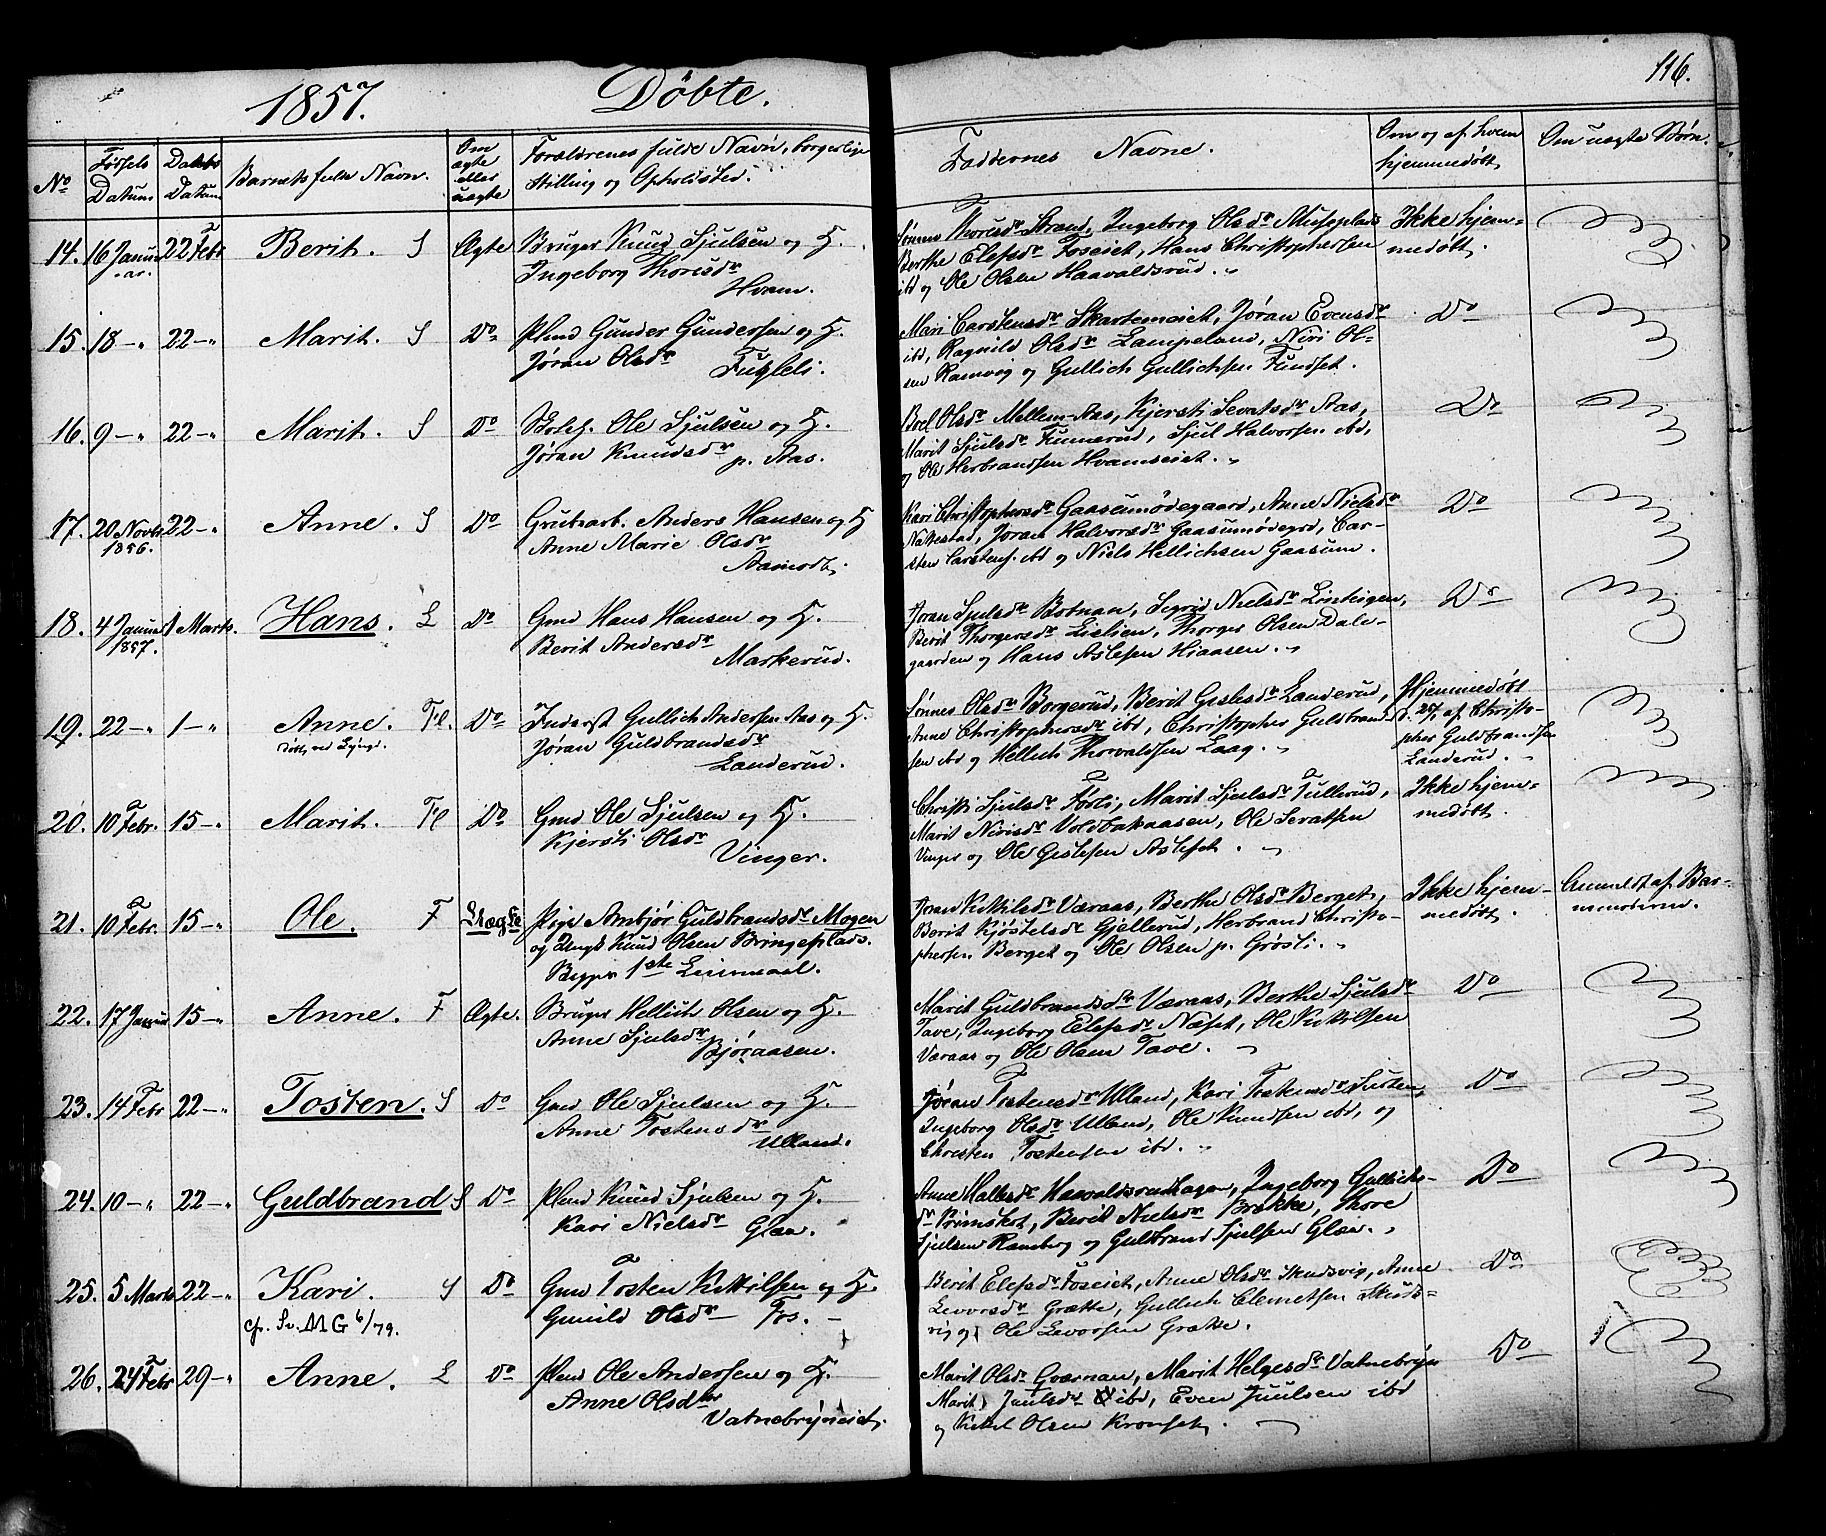 116.
1857. Döbte.
No
Födsels Datum
Daabs Datum
Barnets fulde Navn.
Om ægte eller uægte
Forældrenes fulde Navn, borgerlige Stilling og Opholdsted.
Faddernes Navne.
Om og af hvem hjemmedöbt
Om uægte Börn.
14. 16 Januar 22 Febr Berit. S Ægte Bruger Knud Sjulsen og H.
Ingeborg Thorisdr
Hvam.
Sønnev Thorisdr Strand, Ingeborg Olsdr
Berthe Elefsdr Foseiet, Hans Christophersen
ibd og Ole Olsen Haavaldsrud.
Ikke hjem-
medöbt.
15. 18 -"- 22 -"- Marit. S Do Plmd Gunder Gundersen og H.
Jøran Olsdr
Fugleli.
Mari Carstensdr Skarteneiet, Jøran Evensdr
ibd, Ragnild Olsdr Lampeland, Niri Ol-
sen Ramvig og Gullich Gullichsen Fundset.
Do
16. 9 -"- 22 -"- Marit. S Do Selvej. Ole Sjulsen og H.
Jøran Knudsdr p. Aas.
Boel Olsdr Mellem-Aas, Kjersti Sevatsdr Aas,
Marit Sjulsdr Tumerud, Sjul Halvorsen ibd,
og Ole Herbrandsen Hvamseiet.
Do
17. 20 Novbr 1856. 22 -"- Anne. S Do Grubearb. Anders Hansen og H
Anne Marie Olsdr
Aamodt.
Kari Christophersdr Gaasumödegaard, Anne Nielsdr
Nakkestad, Jøran Halvorsdr Gaasumödegrd, Car-
sten Carstens. ibd og Niels Hellichsen Gaasum.
Do
18. 4 Januar 1857. 1 Marts. Hans. L Do Gmd Hans Hansen og H.
Berit Andersdr
Markerud.
Jøran Sjulsdr Botnan, Sigrid Nielsdr
Berit Thorgersdr Lislien, Thorger Olsen Dale-
gaarden og Hans Aslesen Hiaasen.
Do
19. 22 -"- 1 -"- Anne. Fl. Do Inderst Gullich Andersen Aas og H.
Jøran Guldbrandsdr
Landerud.
Sønnev Olsdr Borgerud, Berit Gislesdr Landerud,
Anne Christophersdr ibd, Christopher Guldbrand-
sen ibd og Hellich Thorvaldsen Laag.
Hjemmedöbt
af Christo-
pher Guldbrandsen
Landerud.
20. 10 Febr. 15 -"- Marit. Fl Do Gmd Ole Sjulsen og H.
Kjersti Olsdr
Vinger.
Christi Sjulsdr Førli, Marit Sjulsdr Tullerud,
Marit Nirisdr Voldbakaasen, Ole Sevatsen
Vinger og Ole Gislesen Aslefet.
Ikke hjem-
medöbt.
21. 10 Febr. 15 -"- Ole. F Uægte Pige Ambjør Guldbrandsdr Mogen
og Ungk Knud Olsen Bringeplads.
Begges 1ste Leiermaal.
Jøran Kittilsdr Væraas, Berthe Olsdr Berget,
Berit Kjøstelsdr Gjellerud, Herbrand Christo-
phersen Berget og Ole Olsen p. Grøsli.
Ikke hjem-
medöbt.
Anmeldt af Bar-
nemoderen.
22. 17 Januar 15 -"- Anne. F Ægte. Bruger Hellich Olsen og H.
Anne Sjulsdr
Bjøraasen.
Marit Guldbrandsdr Væraas, Berthe Sjulsdr
Tave, Ingeborg Elefsdr Næset, Ole Kittilsen
Væraas og Ole Olsen Tave.
Do
23. 14 Febr 22 -"- Tosten. S Do Gmd Ole Sjulsen og H.
Anne Tostensdr
Ulland.
Jøran Tostensdr Ulland, Kari Tostensdr
Ingeborg Olsdr Ulland, Ole Knudsen ibd, og
Christen Tostensen ibd.
Do
24. 10 -"- 22 -"- Guldbrand S Do Plmd Knud Sjulsen og H.
Kari Nielsdr Glæn.
Anne Hallesdr Haavaldsrudhagen, Ingeborg Gullichs-
dr Primskot, Berit Nielsdr Brække, Thore
Sjulsen Ramberg og Guldbrand Sjulsen Glæn.
Do
25. 5 Marts 22 -"- Kari. S Do Gmd Tosten Kittilsen og H.
cfr. Sv. MG 6/79.
Gunild Olsdr Fos.
Berit Elefsdr Foseiet, Anne Olsdr Skudsvig, Anne
Levorsdr Grætte, Gullich Clemetsen Skuds-
vig og Ole Levorsen Grætte.
Do
26. 24 Febr 29 -"- Anne. L Do Plmd Ole Andersen og H.
Anne Olsdtr
Vatnebrynseiet.
Marit Olsdr Gvernan, Marit Helgesdr Vatnebryn
Marit Juulsdr ibd, Even Juulsen ibd
og Kittel Olsen Kronset.
Do